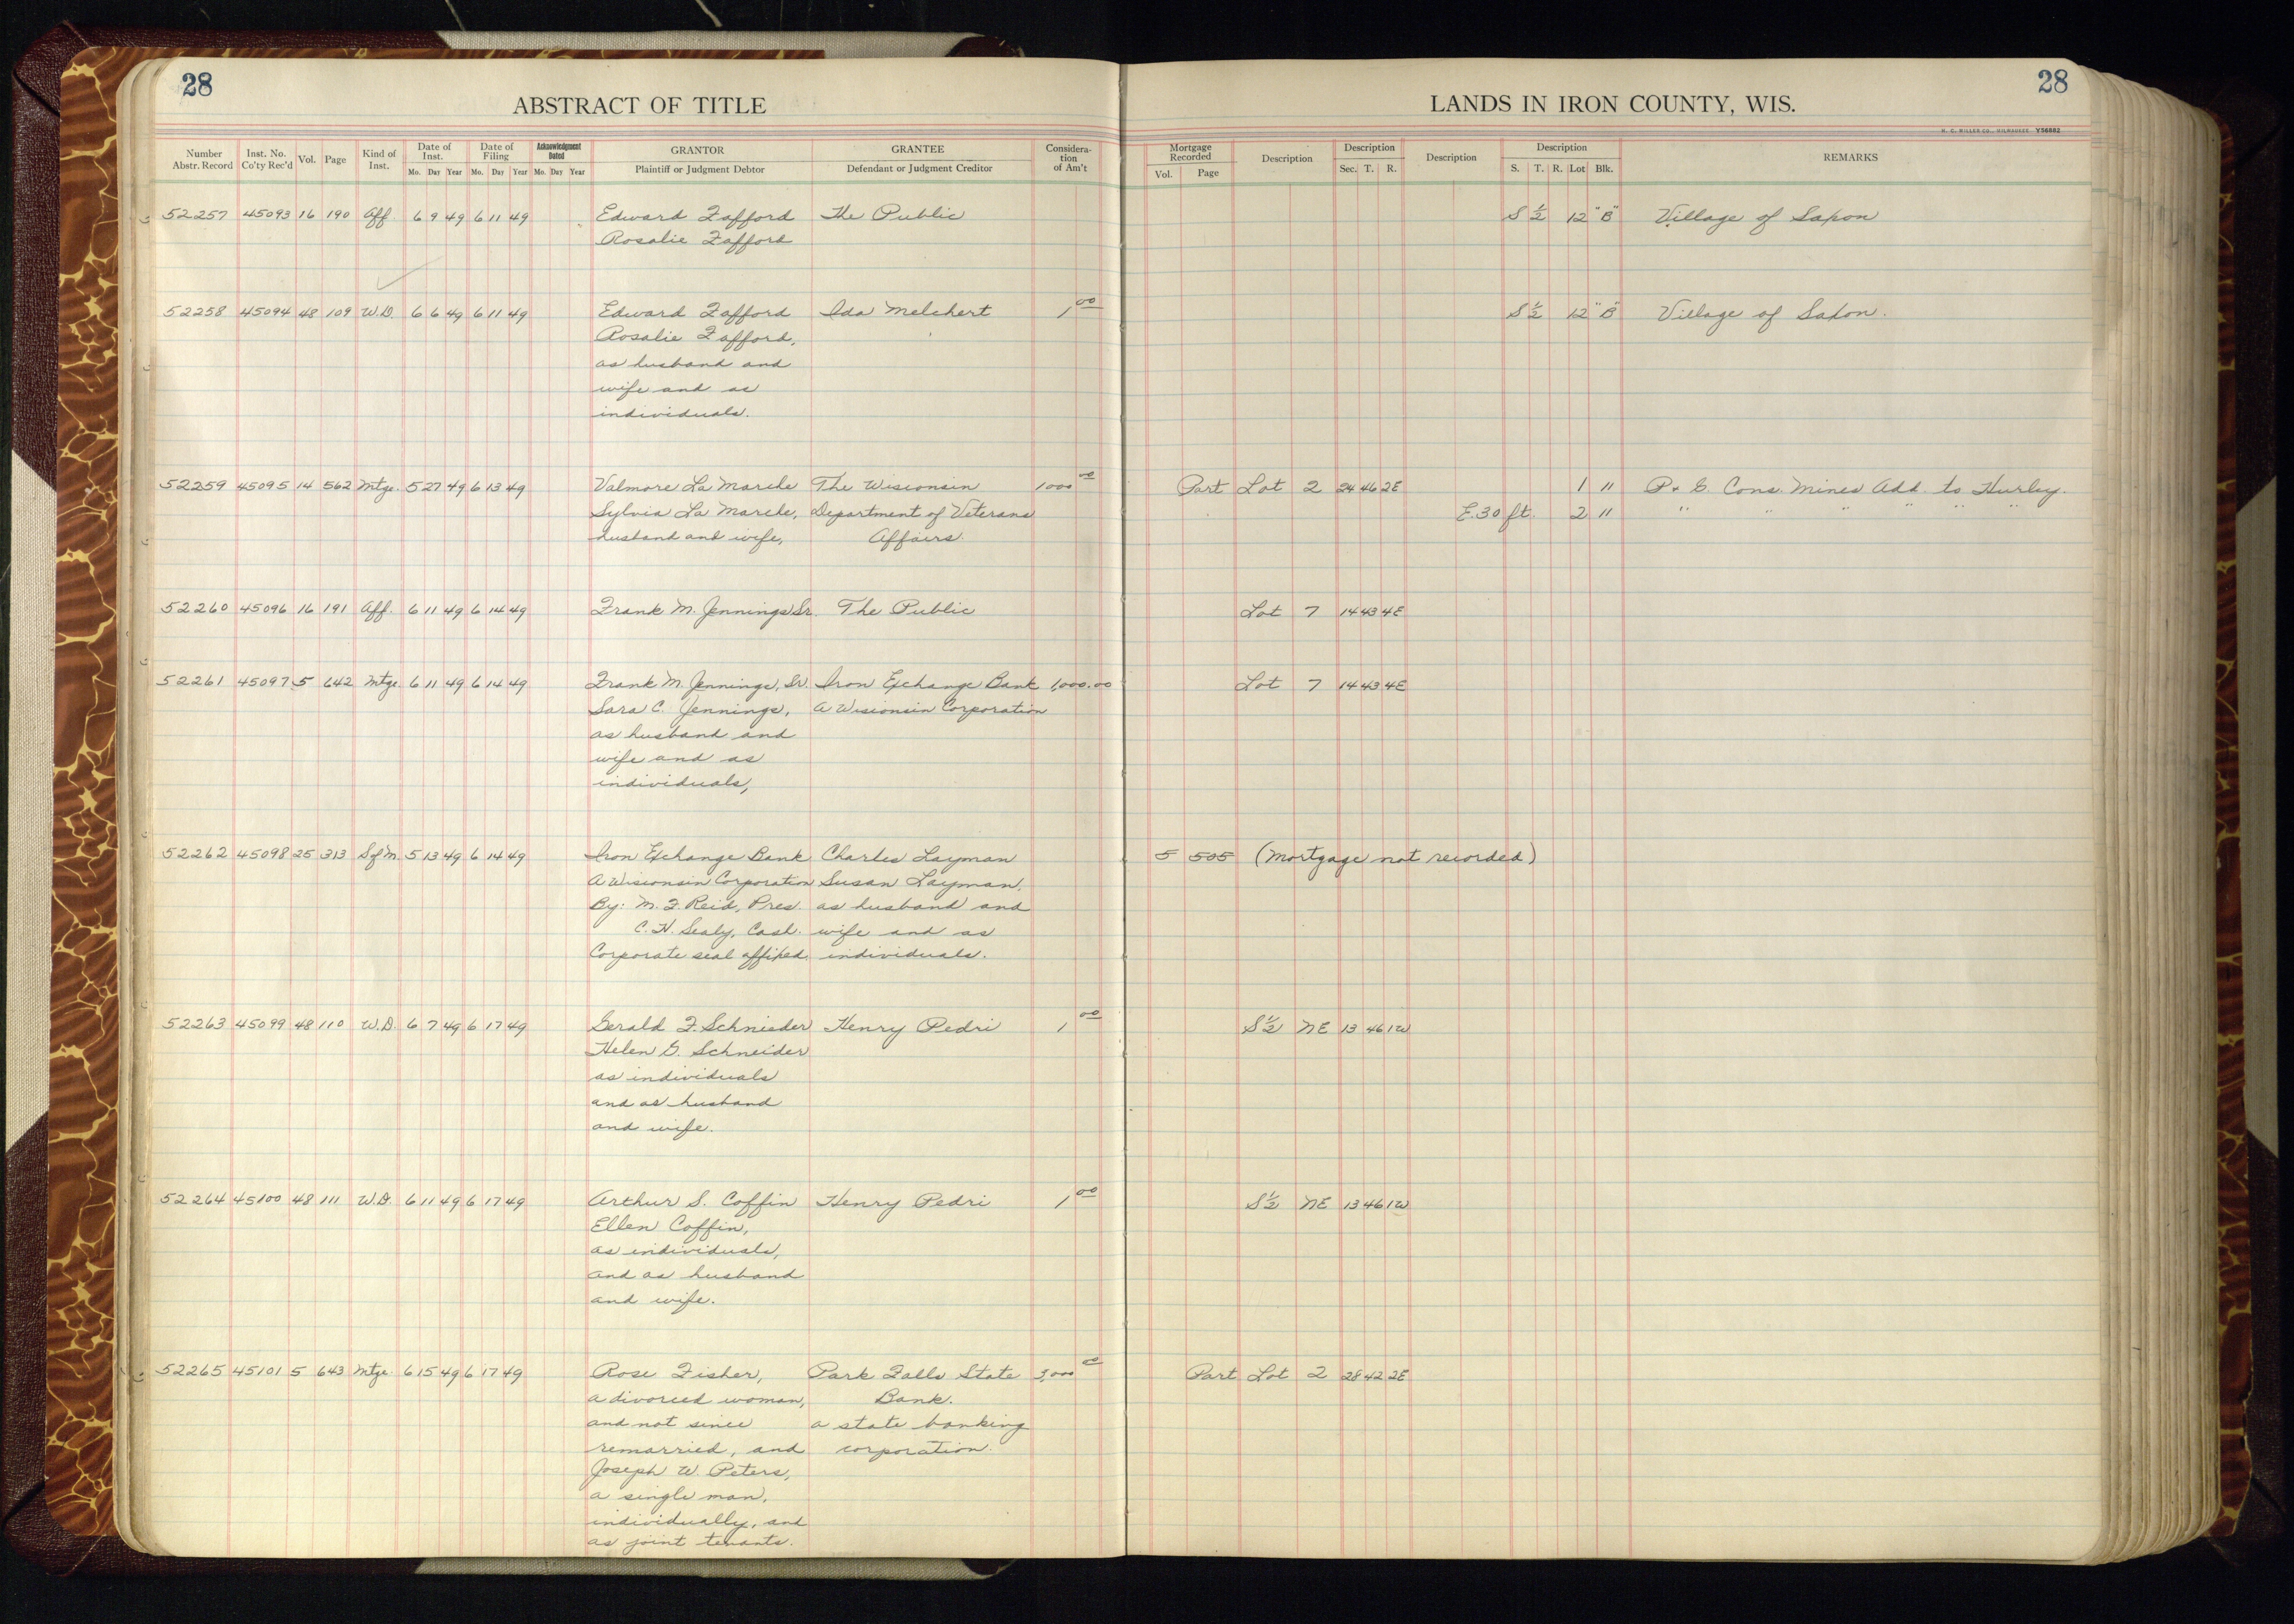 28
28
ABSTRACT OF TITLE
LANDS IN IRON COUNTY, WIS.
H. C. MILLER CO., MILWAUKEE Y56882
Number Abstr. Record Inst. No. Co'ty Rec'd Vol. Page Kind of Inst. Date of Inst. Mo. Day Year Date of Filing Mo. Day Year Acknowledgment Dated Mo. Day Year GRANTOR Plaintiff or Judgment Debtor GRANTEE Defendant or Judgment Creditor Considera-tion of Am't
Mortgage Recorded Vol. Page Description Description Sec. T. R. Description Description S. T. R. Lot Blk. REMARKS
52257 45093 16 190 Aff. 6 9 49 6 11 49 Edward Zafford The Public S 1/2 12 "B" Village of Saxon
Rosalie Zafford
52258 45094 48 109 W.D. 6 6 49 6 11 49 Edward Zafford Ida Melchert 1 00 S 1/2 12 "B" Village of Saxon.
Rosalie Zafford,
as husband and
wife and as
individuals.
52259 45095 14 562 Mtge. 5 27 49 6 13 49 Valmore La Marche The Wisconsin 1000 00 Part Lot 2 24 46 2E 1 11 P. & G. Cons. Mines Add. to Hurley.
Sylvia La Marche, Department of Veterans E. 30 ft. 2 11 " " " " " "
husband and wife, Affairs.
52260 45096 16 191 Aff. 6 11 49 6 14 49 Frank M. Jennings Sr. The Public Lot 7 14 43 4E
52261 45097 5 642 Mtge. 6 11 49 6 14 49 Frank M. Jennings, Sr. Iron Exchange Bank 1,000.00 Lot 7 14 43 4E
Sara C. Jennings, A Wisconsin Corporation
as husband and
wife and as
individuals,
52262 45098 25 313 S of M. 5 13 49 6 14 49 Iron Exchange Bank Charles Layman 5 505 (Mortgage not recorded)
A Wisconsin Corporation Susan Layman,
By: M. F. Reid, Pres. as husband and
C. H. Sealy, Cash. wife and as
Corporate seal affixed. individuals.
52263 45099 48 110 W.D. 6 7 49 6 17 49 Gerald F. Schnieder Henry Pedri 1 00 S 1/2 NE 13 46 1W
Helen G. Schneider
as individuals
and as husband
and wife.
52264 45100 48 111 W.D. 6 11 49 6 17 49 Arthur S. Coffin Henry Pedri 1 00 S 1/2 NE 13 46 1W
Ellen Coffin,
as individuals,
and as husband
and wife.
52265 45101 5 643 Mtge. 6 15 49 6 17 49 Rose Fisher, Park Falls State Part Lot 2 28 42 2E
a divorced woman, Bank.
and not since a state banking
remarried, and corporation.
Joseph W. Peters,
a single man,
individually, and
as joint tenants.